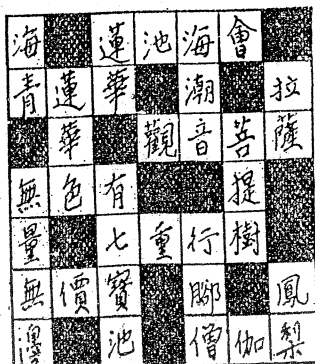 海 蓮池海會
青蓮華 潮 拉
華 觀音菩薩
無色有 提
量 七重行樹
無價寶 腳 鳳
邊 池 僧伽梨